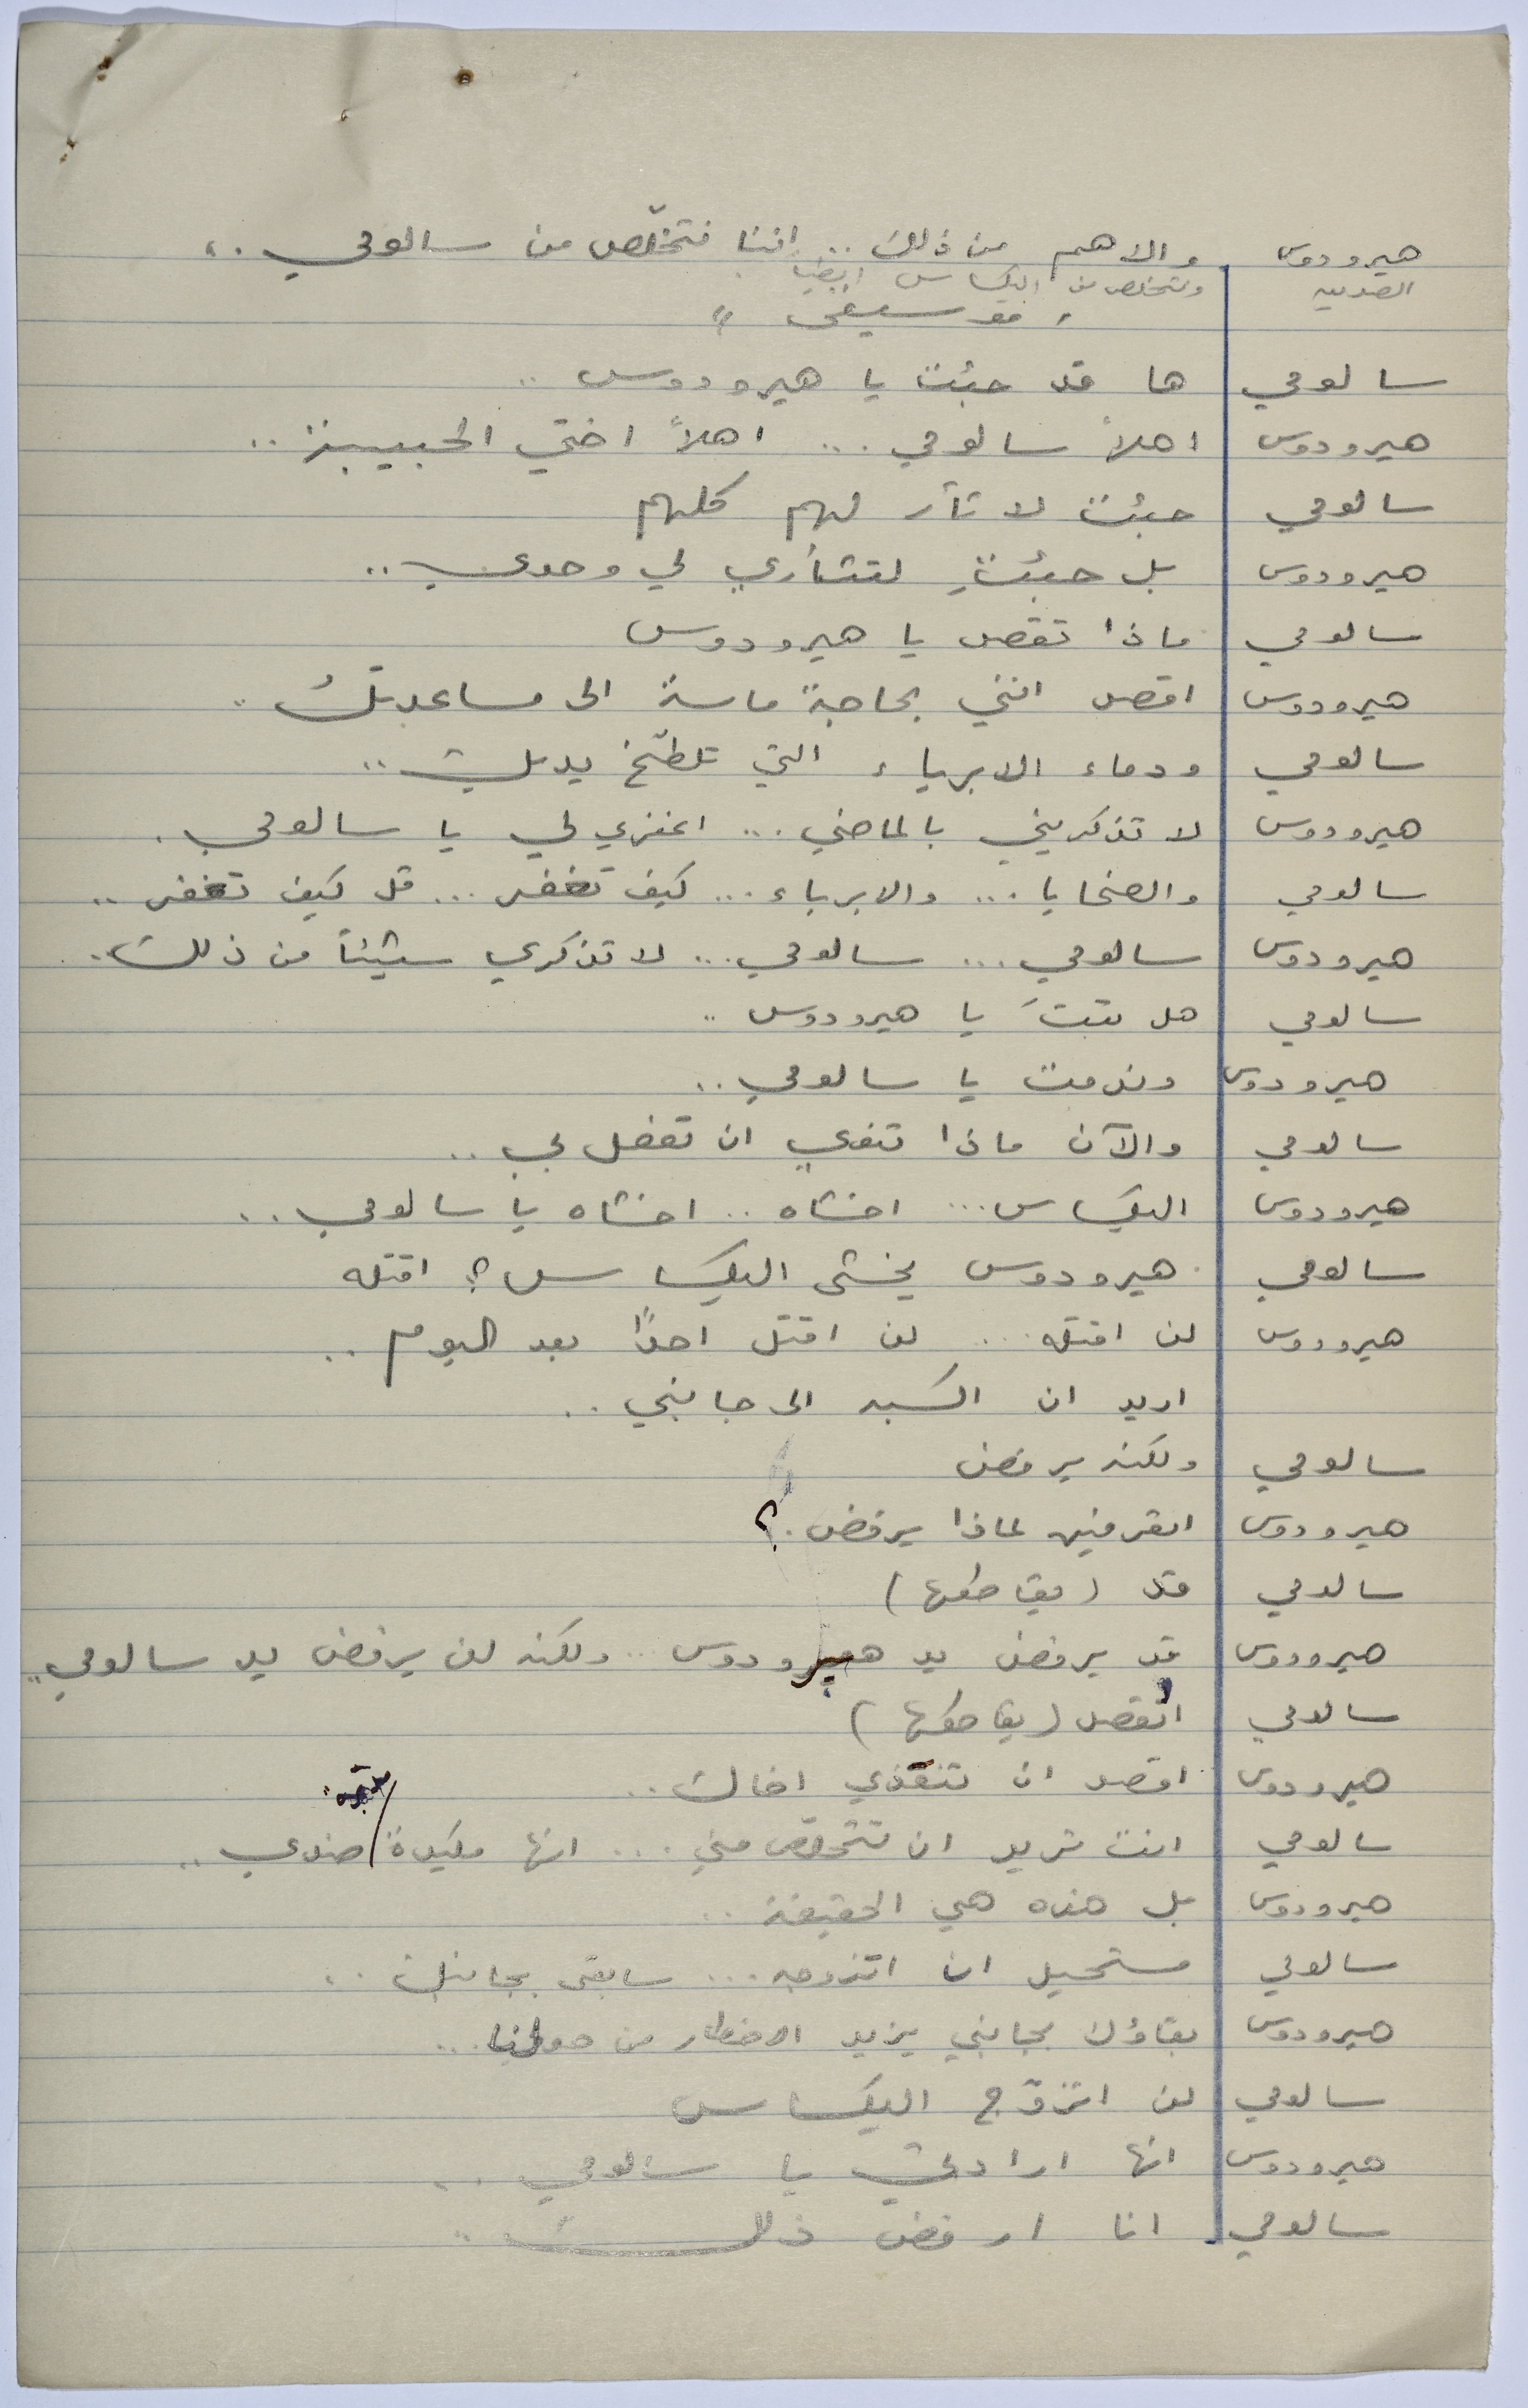 هيرودوس والاهم من ذلك .. اننا نتخلّص من سالومي ..
الصديق ونتخلص من اليكساس ايضاً
" موسيقى "
سالومي ها قد جئت يا هيرودوس ..
هيرودوس اهلاً سالومي ... اهلاً اختي الحبيبة ..
سالومي جئت لاثأر لهم كلهم
هيرودوس بل جئتِ لتثأري لي وحدي ..
سالومي ماذا تقصد يا هيرودوس
هيرودوس اقصد انني بحاجة ماسة الى مساعدتك ..
سالومي ودماء الابرياء التي تلطّخ يديك ..
هيرودوس لا تذكريني بالماضي ... اغفري لي يا سالومي .
سالومي والضحايا ... والابرياء ... كيف تغفر ... قل كيف تغفر ..
هيرودوس سالومي ... سالومي ... لا تذكري شيئاً من ذلك ..
سالومي هل تبتَ يا هيرودوس ..
هيرودوس وندمت يا سالومي ..
سالومي والآن ماذا تنوي ان تفعل بي ..
هيرودوس اليكساس ... اخشاه .. اخشاه يا سالومي ..
سالومي هيرودوس يخشى اليكساس ؟ اقتله
هيرودوس لن اقتله ... لن اقتل احداً بعد اليوم ..
اريد ان اكسبه الى جانبي ..
سالومي ولكنه يرفض
هيرودوس اتعرفين لماذا يرفض . ؟
سالومي قد ( يقاطعها )
هيرودوس قد يرفض يد هيرودوس .. ولكنه لن يرفض يد سالومي ..
سالومي اتقصد ( يقاطعها )
هيرودوس اقصد ان تنقذي اخاك ..
سالومي انت تريد ان تتخلّص مني ... انها مكيدة / ضدي ..
هيرودوس بل هذه هي الحقيقة ..
سالومي مستحيل ان اتزوجه ... سابقى بجانبك ..
هيرودوس بقاؤك بجانبي يزيد الاخطار من حولنا ...
سالومي لن اتزوّج اليكساس
هيرودوس انها ارادتي يا سالومي ..
سالومي انا ارفض ذلك ..